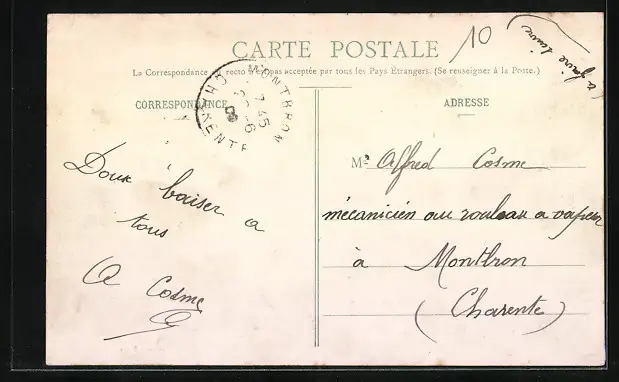 10
à faire suivre
CARTE POSTALE
La Correspondance au recto n'est pas acceptée par tous les Pays Étrangers. (Se renseigner à la Poste.)
CORRESPONDANCE
ADRESSE
MONTBRON
7 45
6
CHARENTE
Doux baiser a
tous
A Cosme
M. Alfred Cosme
mécanicien au rouleau a vapeur
à Montbron
(Charente)